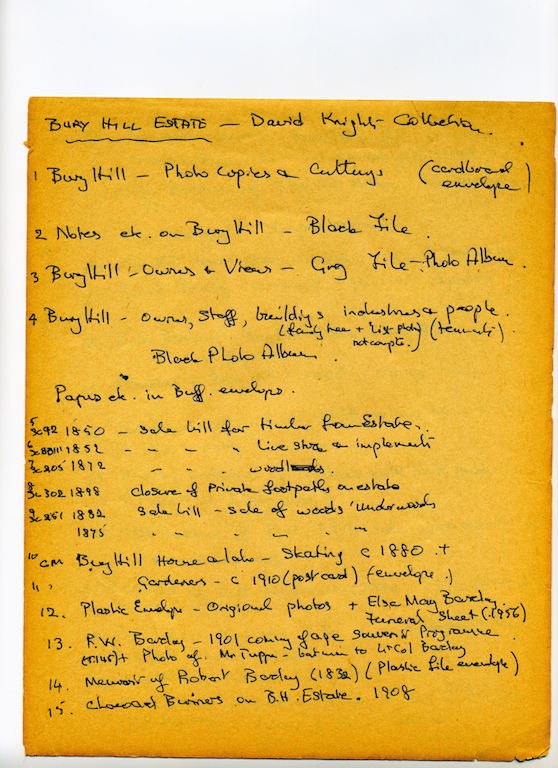 BURY HILL ESTATE — David Knight Collection.
1 Bury Hill — Photo Copies & Cuttings (cardboard envelope)
2 Notes etc. on Bury Hill — Black File.
3 Bury Hill — Owners & Views — Grey File — Photo Album.
4 Bury Hill — owners, Staff, buildings industries & people.
(family tree + list
not complete.) (tenants)
Black Photo Album.
Papers etc. in Buff. envelope.
5 SC92 1850 — sale bill for timber from Estate.
6 1852 — " " " Live stock & implements
7 SC205 1872 " " " woodlands.
8 SC302 1898 Closure of Private footpaths on estate
9 1882 Sale bill — sale of woods' underwoods
1875 " " " " "
10 CM Bury Hill House & lake — Skating c 1880 +
11 " Gardeners — c 1910 (post card) (envelope.)
12. Plastic Envelope — Original photos + Else May Barclay
Funeral Sheet (1956)
13. R.W. Barclay — 1901 coming of age Souvenir Programme.
+ Photo of Mr Tuppen — batman to Lt Col Barclay
14. Memoir of Robert Barclay (1832) (Plastic file envelope)
15. Charcoal Burners on B.H. Estate. 1908